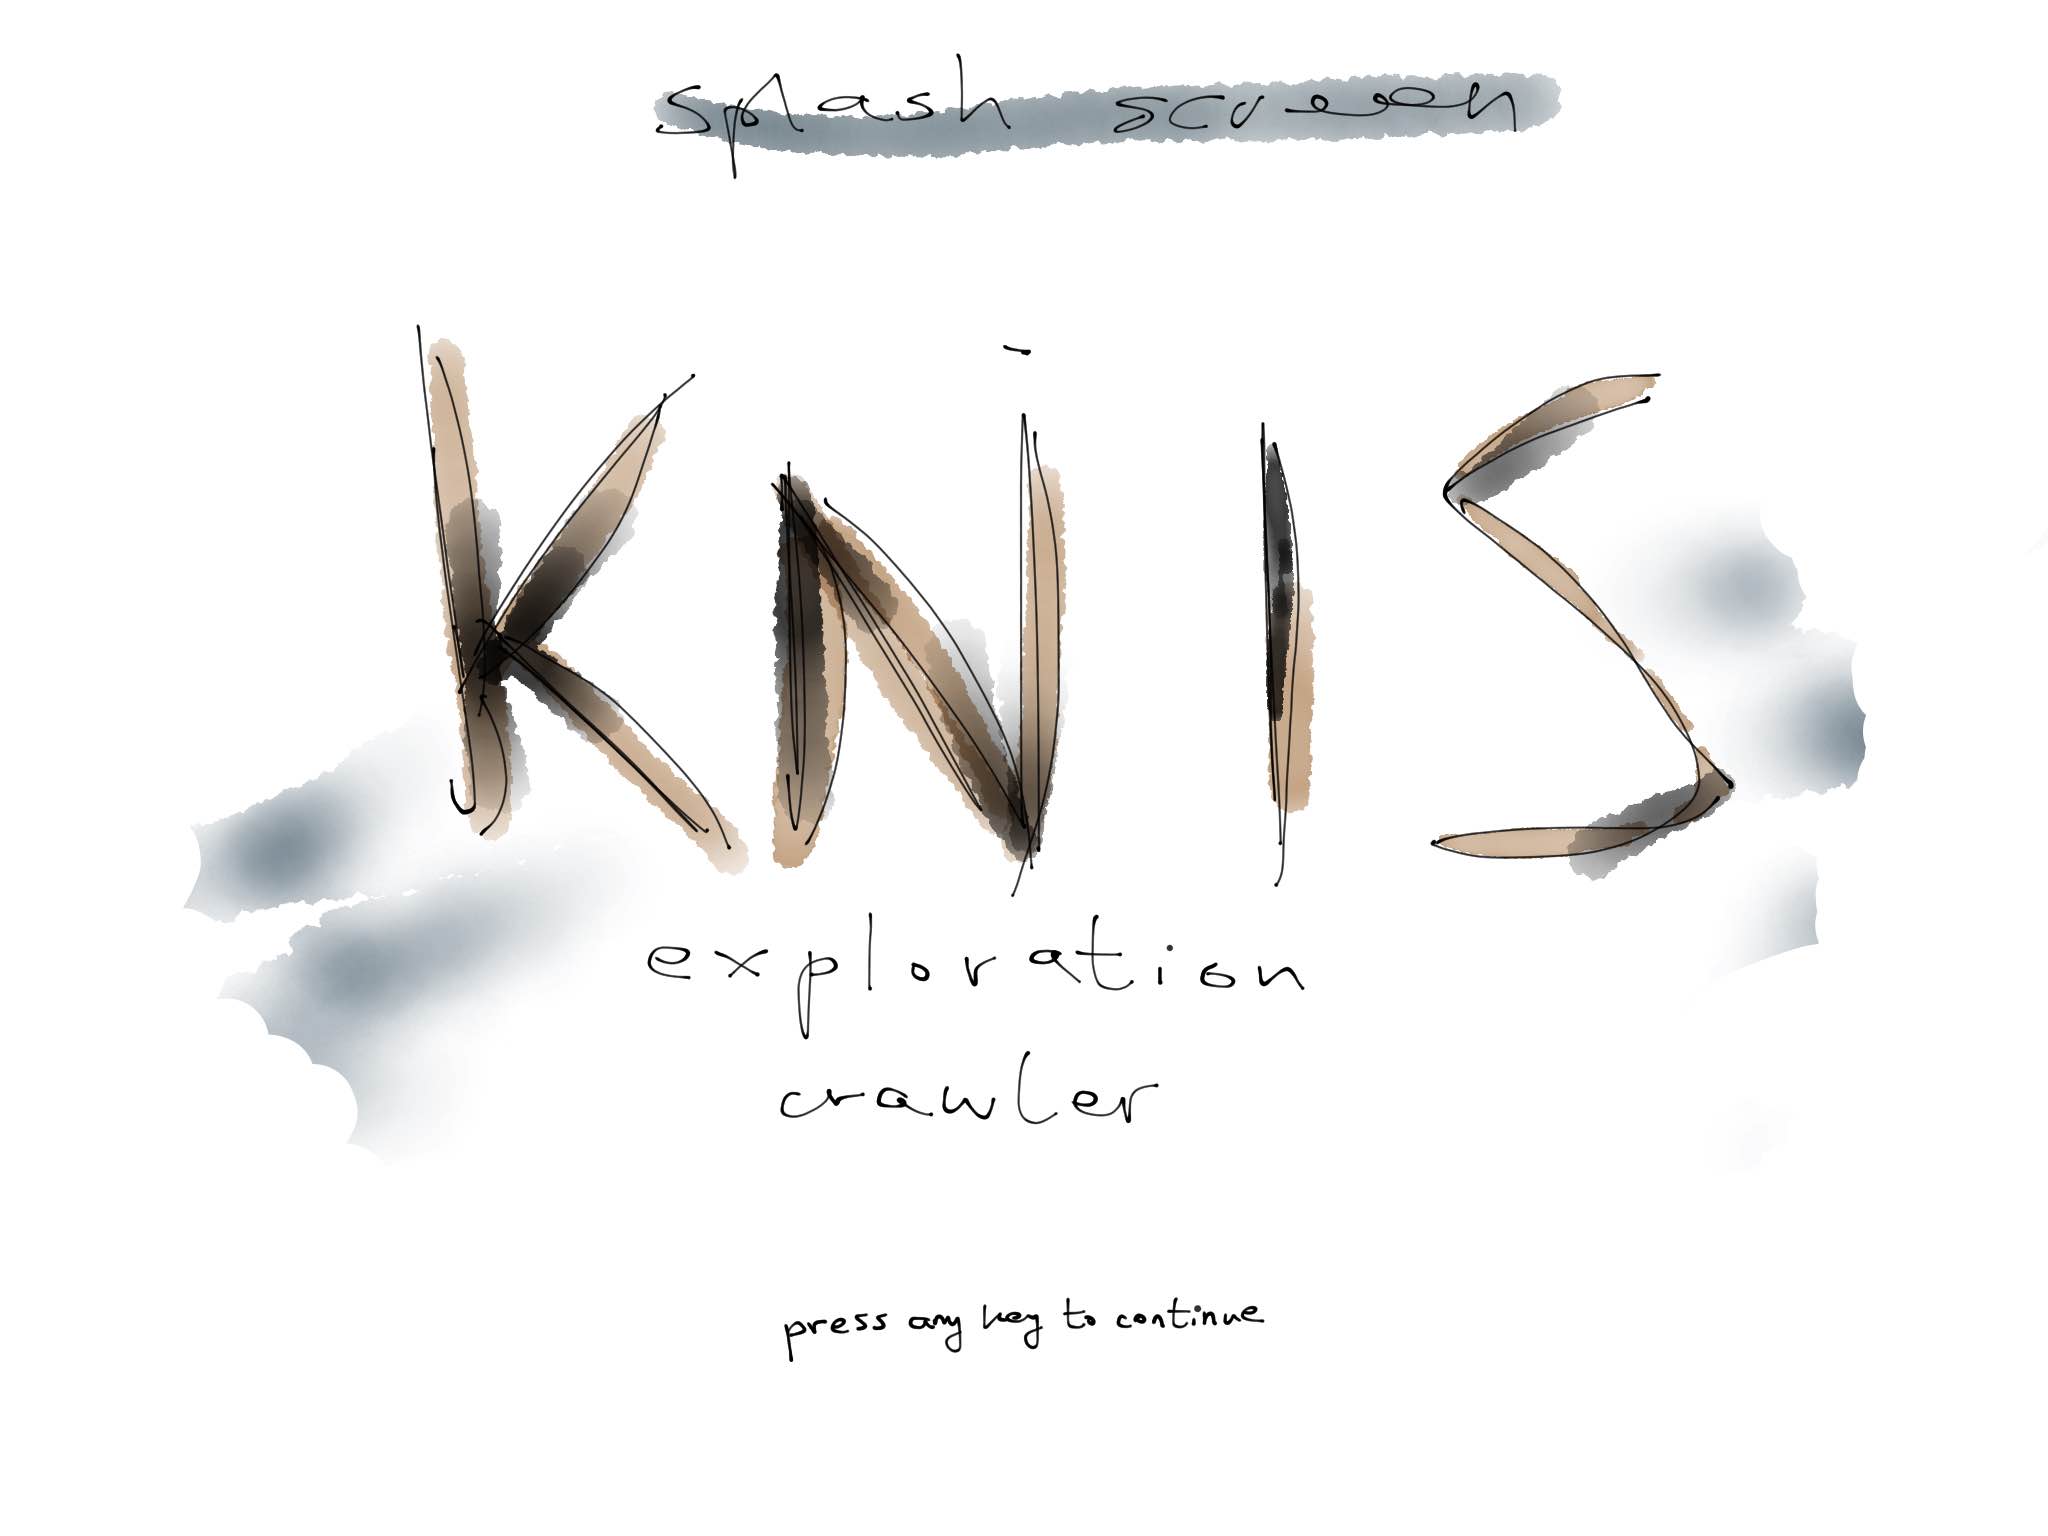 splash screen
KNIS
exploration
crawler
press any key to continue